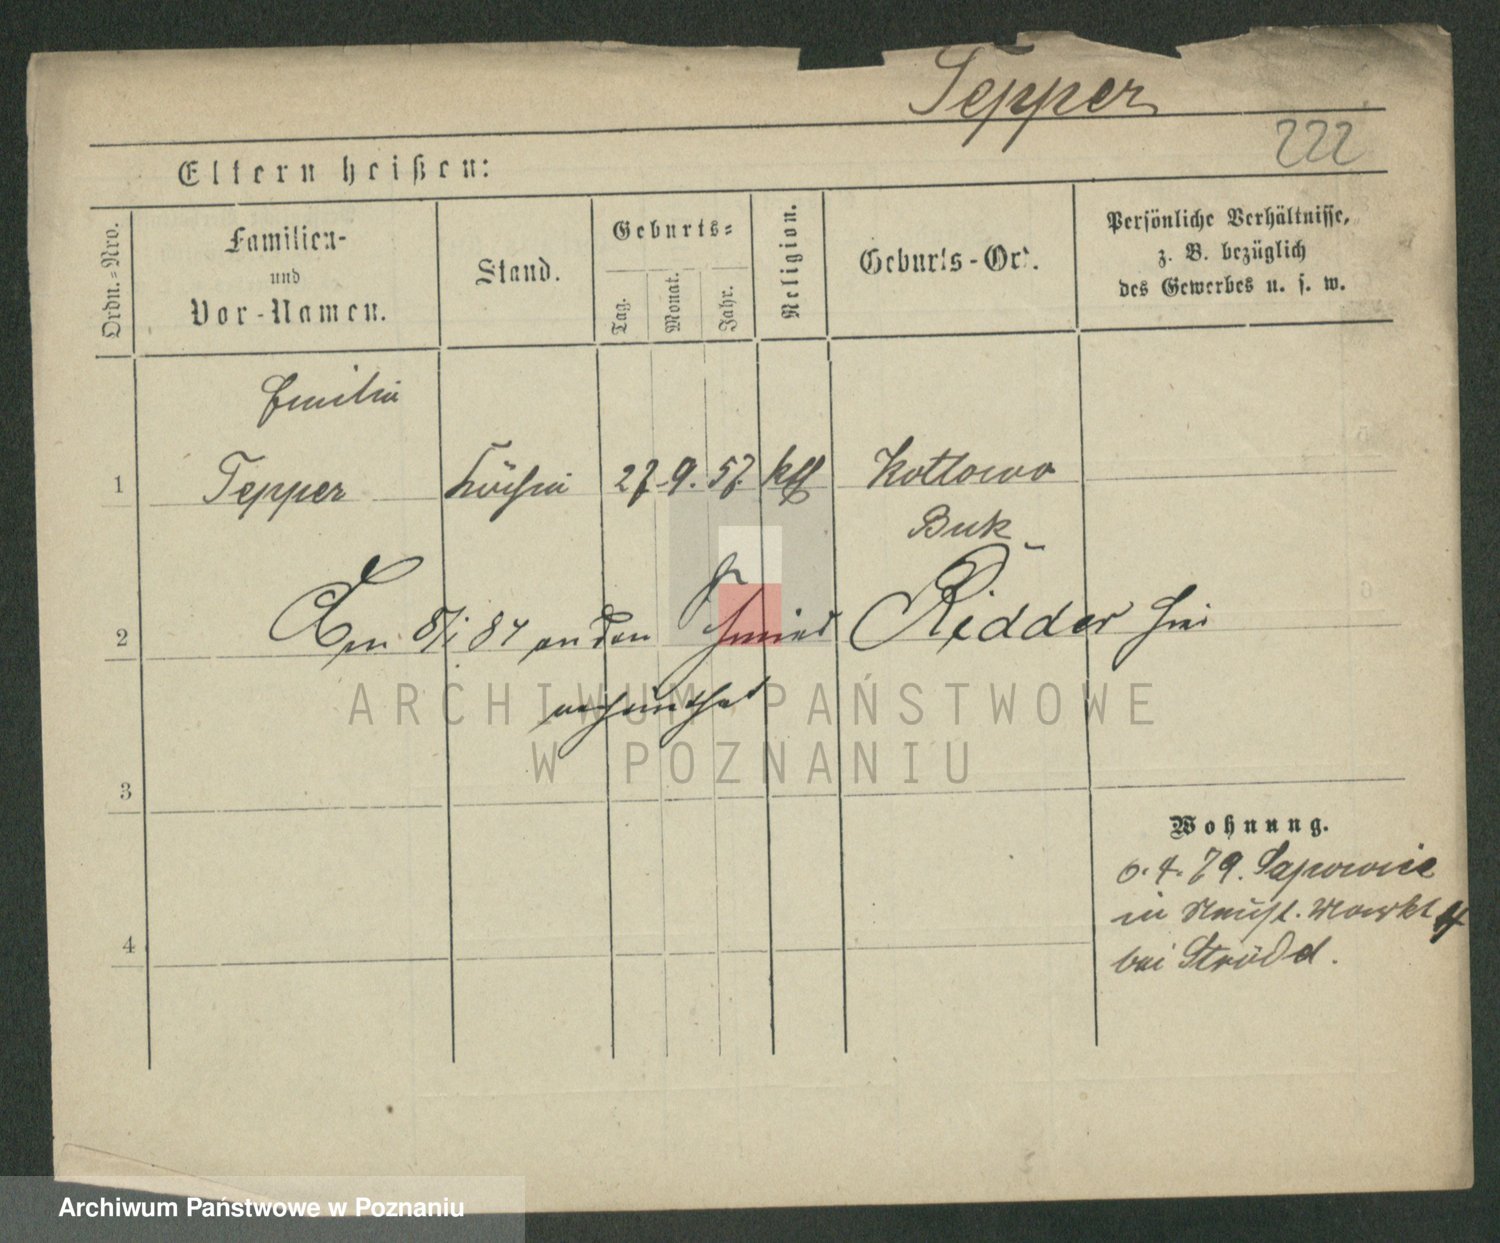 Tepper
222
Eltern heißen:
Ordn.-Nro.
Familien-
und
Vor-Namen.
Stand.
Geburts-
Tag.
Monat.
Jahr.
Religion.
Geburts-Ort.
Persönliche Verhältnisse,
z. B. bezüglich
des Gewerbes u. s. w.
Emilie
1 Tepper Köchin 27. 9. 57. kth Kotlowo
Buk
2 Am 8/1 84 an den Schmied Ridder hier
verheirathet
ARCHIWUM PAŃSTWOWE
W POZNANIU
3
Wohnung.
6. 4. 79.
in Neust. Markt 4
4 bei
Archiwum Państwowe w Poznaniu